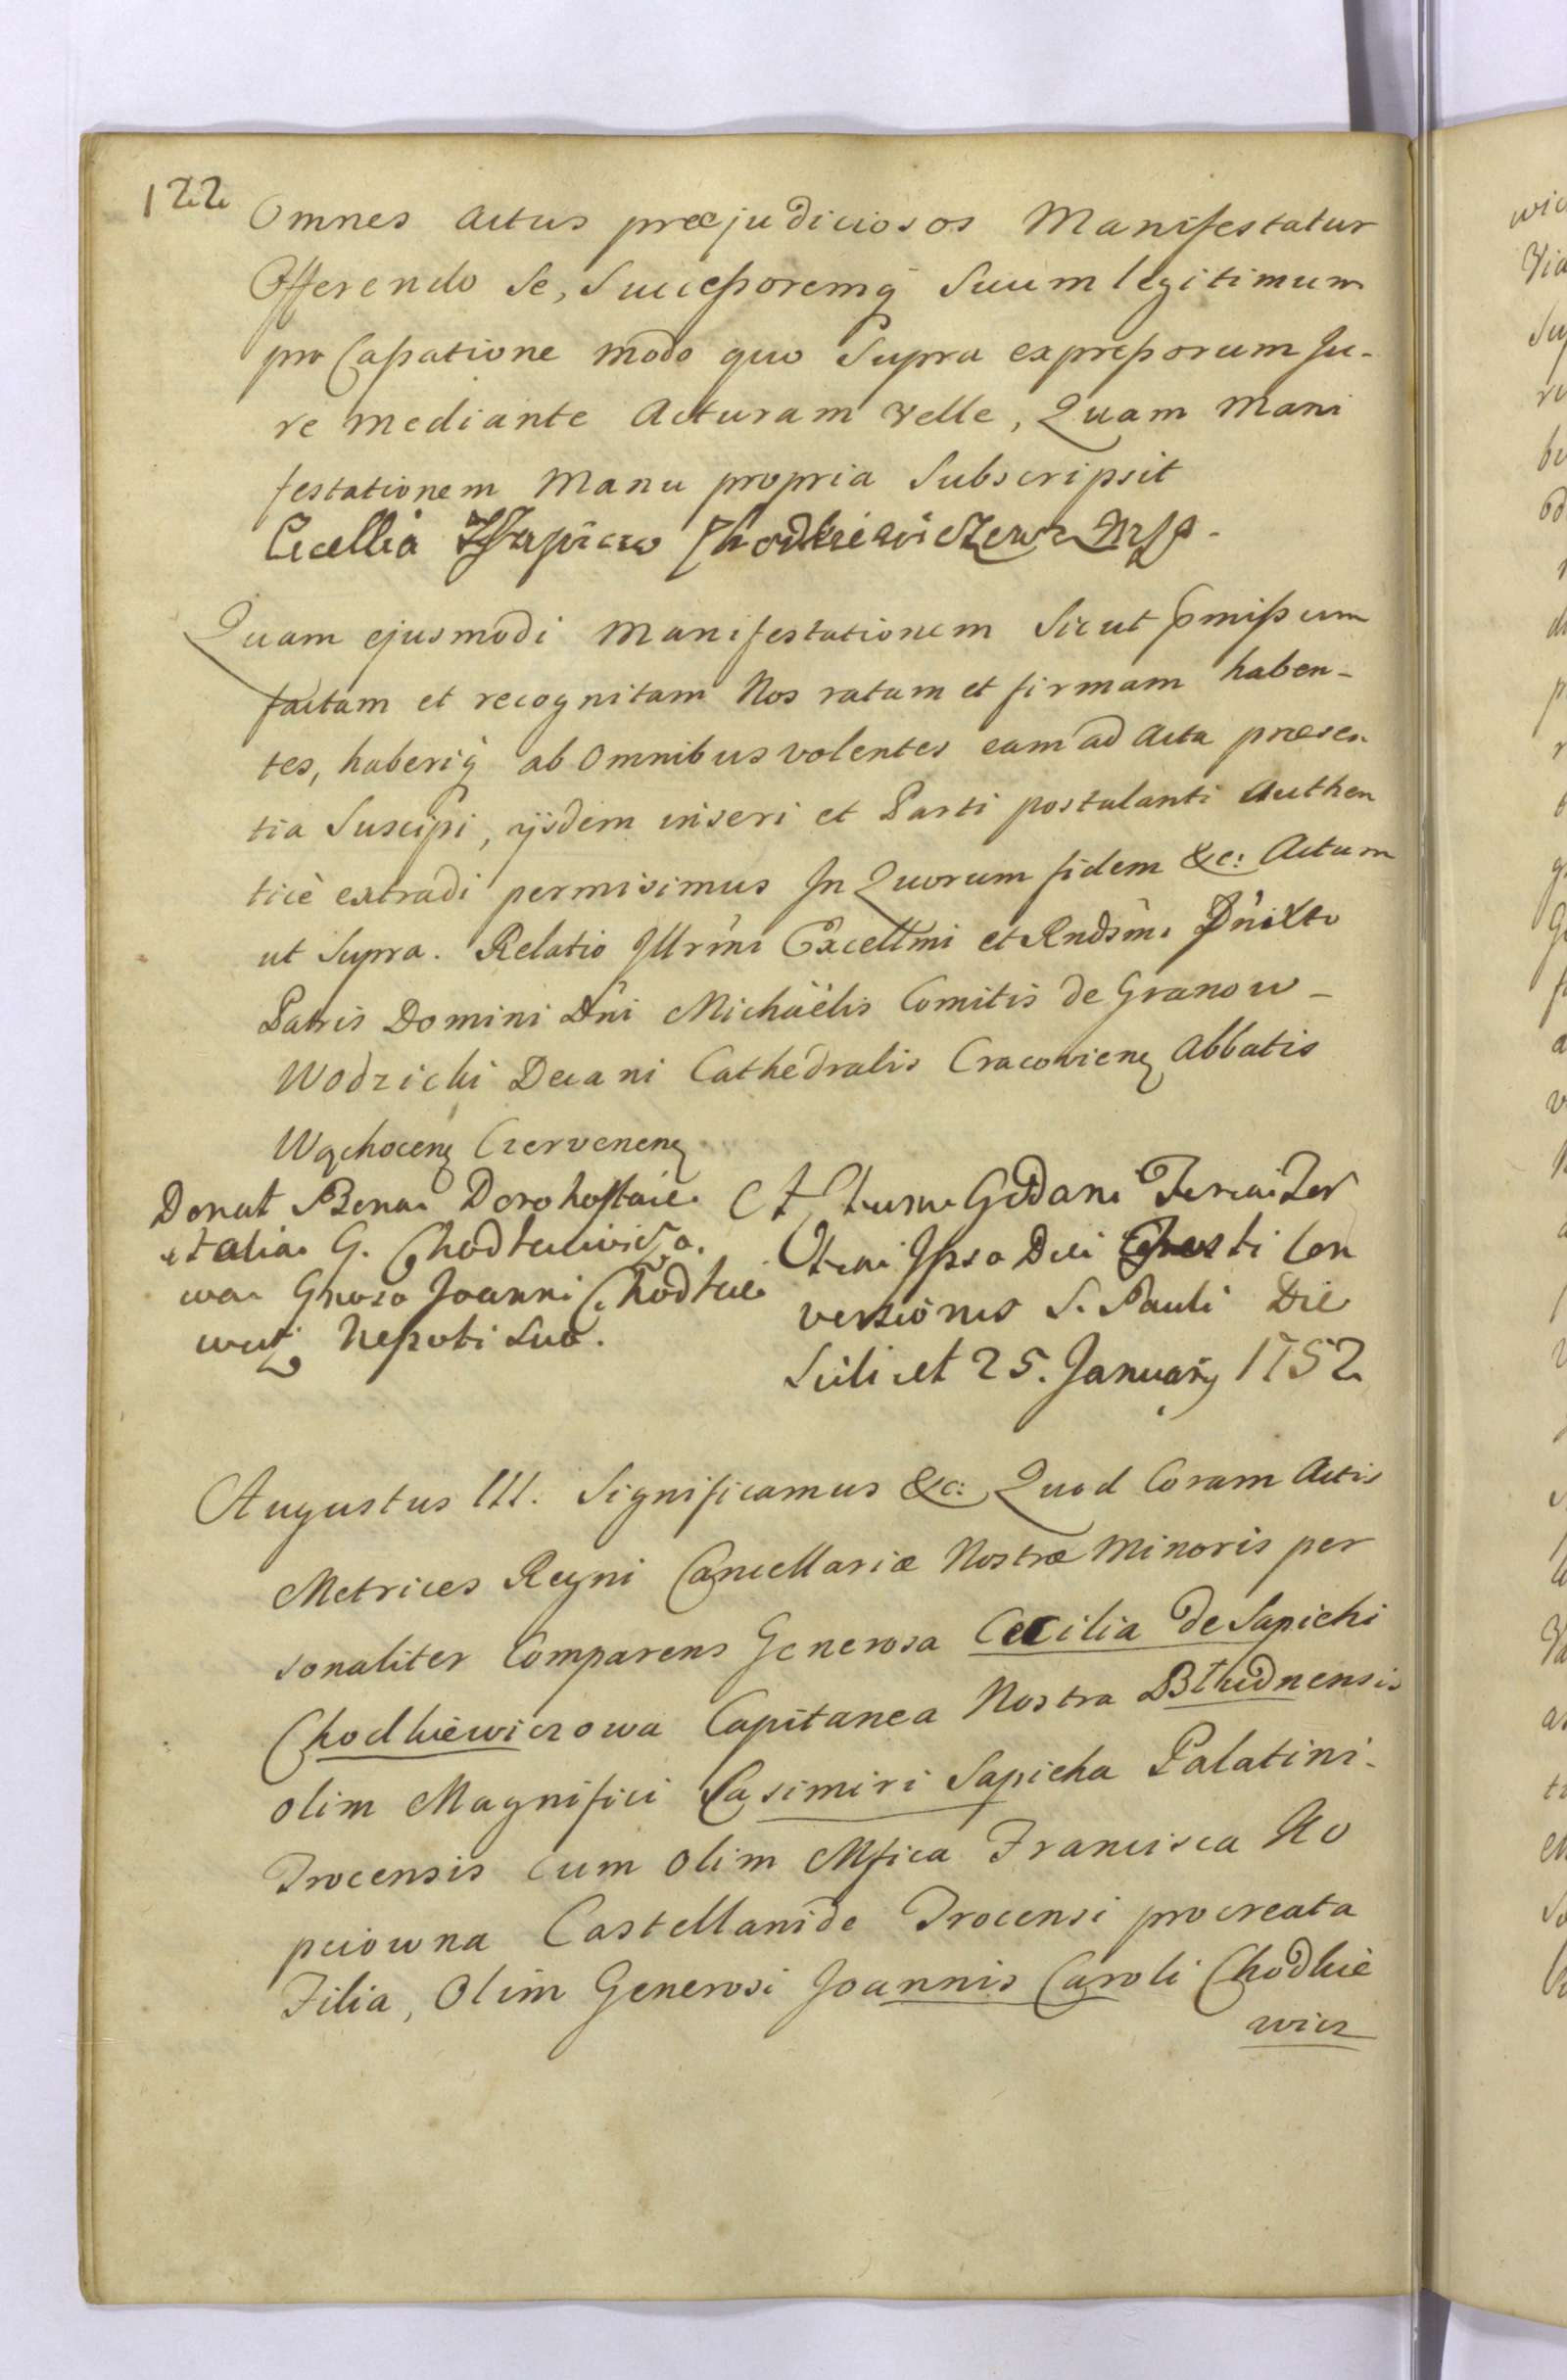 122
Omnes actus præjudiciosos Manifestatur
Offerendo Se, Successoremq́ Suum legitimum
pro Cassatione modo quo Supra expressorum Ju-
re mediante Acturam velle, Quam Mani
festationem Manu propria Subscripsit
Cecellia Chodkiewiczewa
Quam ejusmodi Manifestationem Sicut pmissum
factam et recognitam Nos ratam et firmam haben-
tes, haberiq́ ab Omnibus volentes eam ad Acta præsen
tia Suscipi, ijsdem inseri et Parti postulanti Authen
ticè extradi permisimus In Quorum fidem &c: Actum
ut Supra. Relatio Illrm̃i Excellmi et Rndsm̃i
Patris Domini Dñi Michäelis Comitis de Granow-
Wodzicki Decani Cathedralis Cracovienꝫ Abbatis
Wąchocenꝫ Czervenenꝫ
Donat Bona Dorohostaie
et alia G. Chodkiewiczo.
wa Gnoso Joanni Chodkie
wicz Nepoti Suo.
Actum Gedani Feria Ter
Ipso Die Festi Con
versionis S. Pauli Die
Scilicet 25. Januarij 1752
Augustus III. Significamus &c: Quod Coram Actis
Metrices Regni Cancellariæ Nostræ Minoris per
sonaliter Comparens Generosa Cecilia de Sapiehi
Chodkiewiczowa Capitanea Nostra Błudnensis
olim Magnifici Casimiri Sapieha Palatini
Trocensis cum olim Mfica Francisca Ko
pciowna Castellanide Trocensi procreata
Filia, Olim Generosi Joannis Caroli Chodkie
wicz